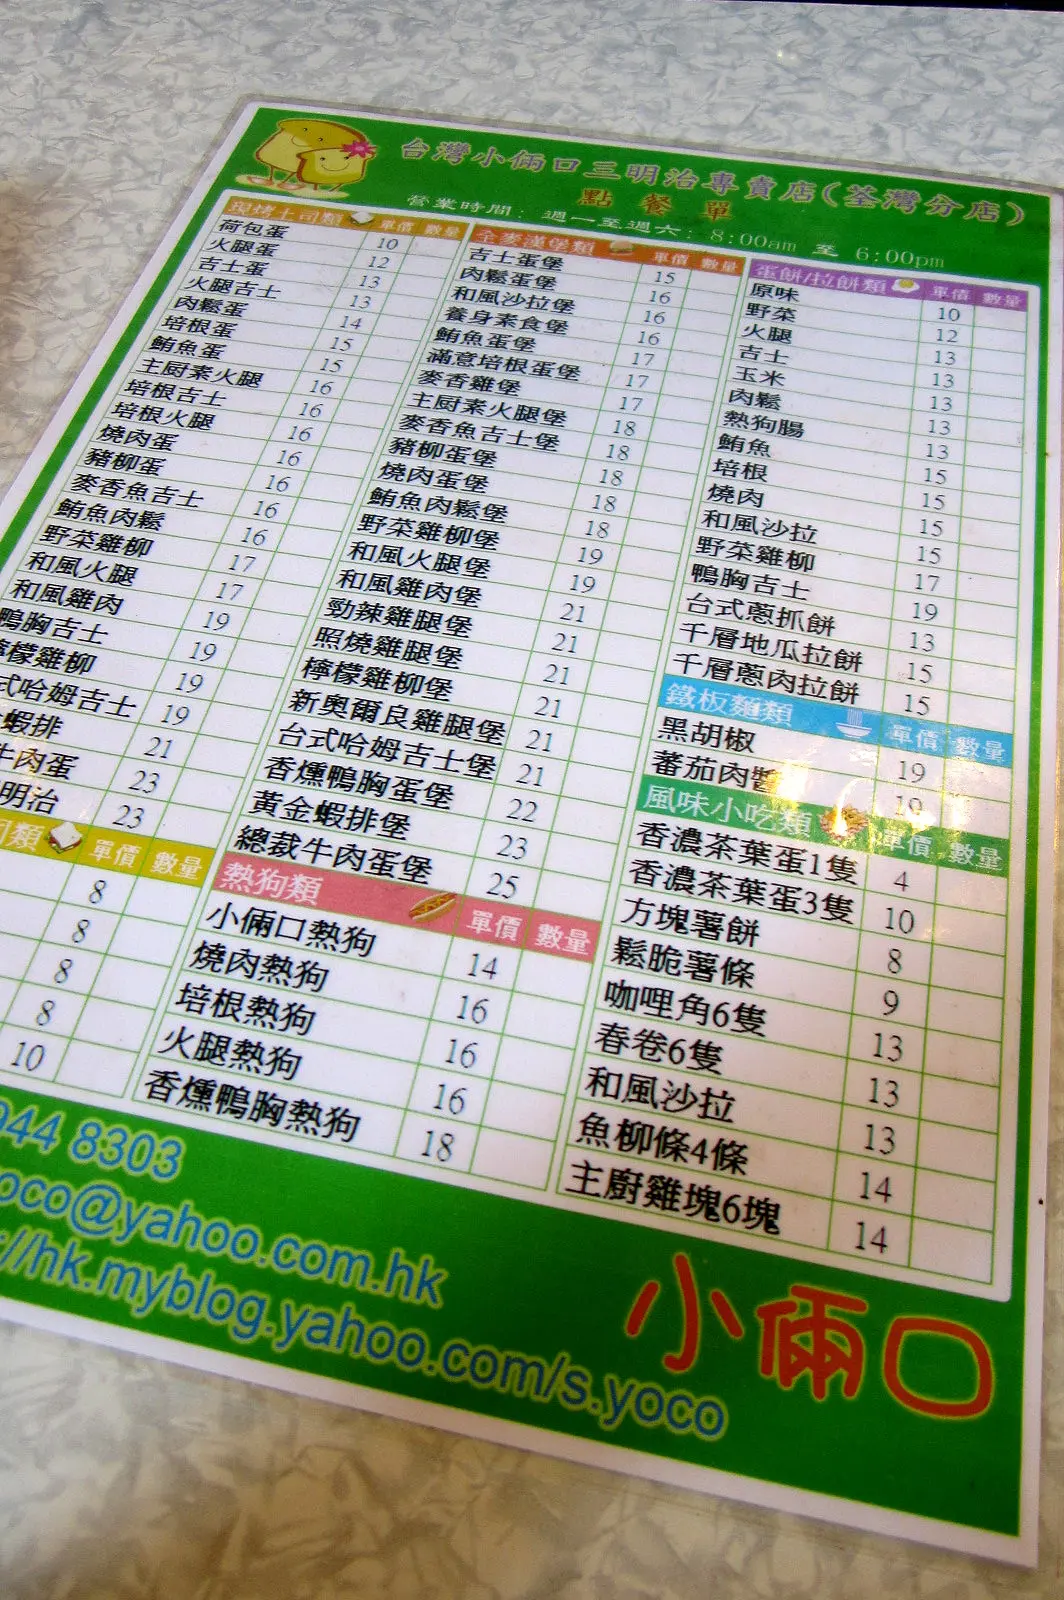 台灣小倆口三明治專賣店(荃灣分店)
點餐單
營業時間: 週一至週六: 8:00am 至 6:00pm
現烤土司類 單價 數量
荷包蛋 10
火腿蛋 12
吉士蛋 13
火腿吉士 13
肉鬆蛋 14
培根蛋 15
鮪魚蛋 15
主厨素火腿 16
培根吉士 16
培根火腿 16
燒肉蛋 16
豬柳蛋 16
麥香魚吉士 16
鮪魚肉鬆 16
野菜雞柳 17
和風火腿 17
和風雞肉 19
鴨胸吉士 19
檸檬雞柳 19
式哈姆吉士 19
蝦排 21
牛肉蛋 23
明治 23
司類 單價 數量
8
8
8
8
10
全麥漢堡類 單價 數量
吉士蛋堡 15
肉鬆蛋堡 16
和風沙拉堡 16
養身素食堡 16
鮪魚蛋堡 17
滿意培根蛋堡 17
麥香雞堡 17
主厨素火腿堡 18
麥香魚吉士堡 18
豬柳蛋堡 18
燒肉蛋堡 18
鮪魚肉鬆堡 18
野菜雞柳堡 19
和風火腿堡 19
和風雞肉堡 21
勁辣雞腿堡 21
照燒雞腿堡 21
檸檬雞柳堡 21
新奧爾良雞腿堡 21
台式哈姆吉士堡 21
香燻鴨胸蛋堡 22
黃金蝦排堡 23
總裁牛肉蛋堡 25
熱狗類 單價 數量
小倆口熱狗 14
燒肉熱狗 16
培根熱狗 16
火腿熱狗 16
香燻鴨胸熱狗 18
蛋餅/拉餅類 單價 數量
原味 10
野菜 12
火腿 13
吉士 13
玉米 13
肉鬆 13
熱狗腸 13
鮪魚 15
培根 15
燒肉 15
和風沙拉 15
野菜雞柳 17
鴨胸吉士 19
台式蔥抓餅 13
千層地瓜拉餅 15
千層蔥肉拉餅 15
鐵板麵類 單價 數量
黑胡椒 19
蕃茄肉醬 19
風味小吃類 單價 數量
香濃茶葉蛋1隻 4
香濃茶葉蛋3隻 10
方塊薯餅 8
鬆脆薯條 9
咖哩角6隻 13
春卷6隻 13
和風沙拉 13
魚柳條4條 14
主廚雞塊6塊 14
944 8303
oco@yahoo.com.hk
://hk.myblog.yahoo.com/s.yoco
小倆口